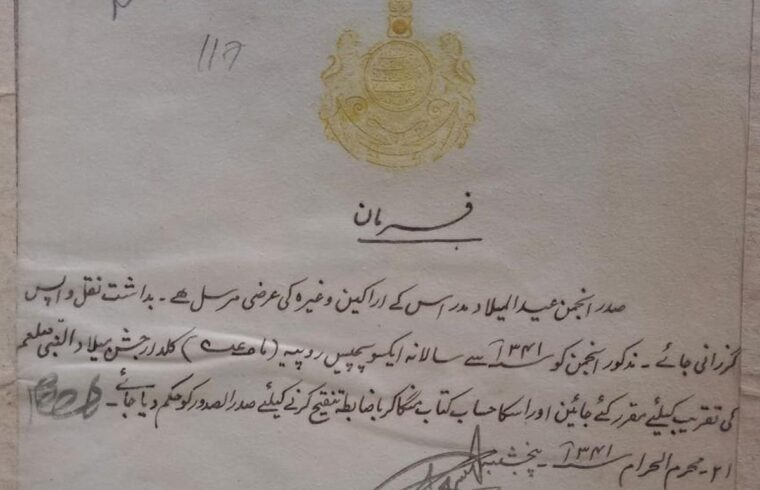 117
فرمان
صدر انجمن عید المیلاد مدراس کے اراکین وغیرہ کی عرضی مرسل ھے ۔ بداشت نقل واپس
گزرانی جائے ۔ مذکور انجمن کو ۱۳۴۱ سے سالانہ ایکسو پچیس روپیہ ( ) کلدار جشن میلاد النبی صلعم
کی تقریب کیلئے مقرر کئے جائین اور اسکا حساب کتاب منگا کر باضابطہ تنقیح کرنے کیلئے صدر الصدور کو حکم دیا جائے ۔
۲۱ ۔ محرم الحرام ۱۳۴۱ پنجشنبہ